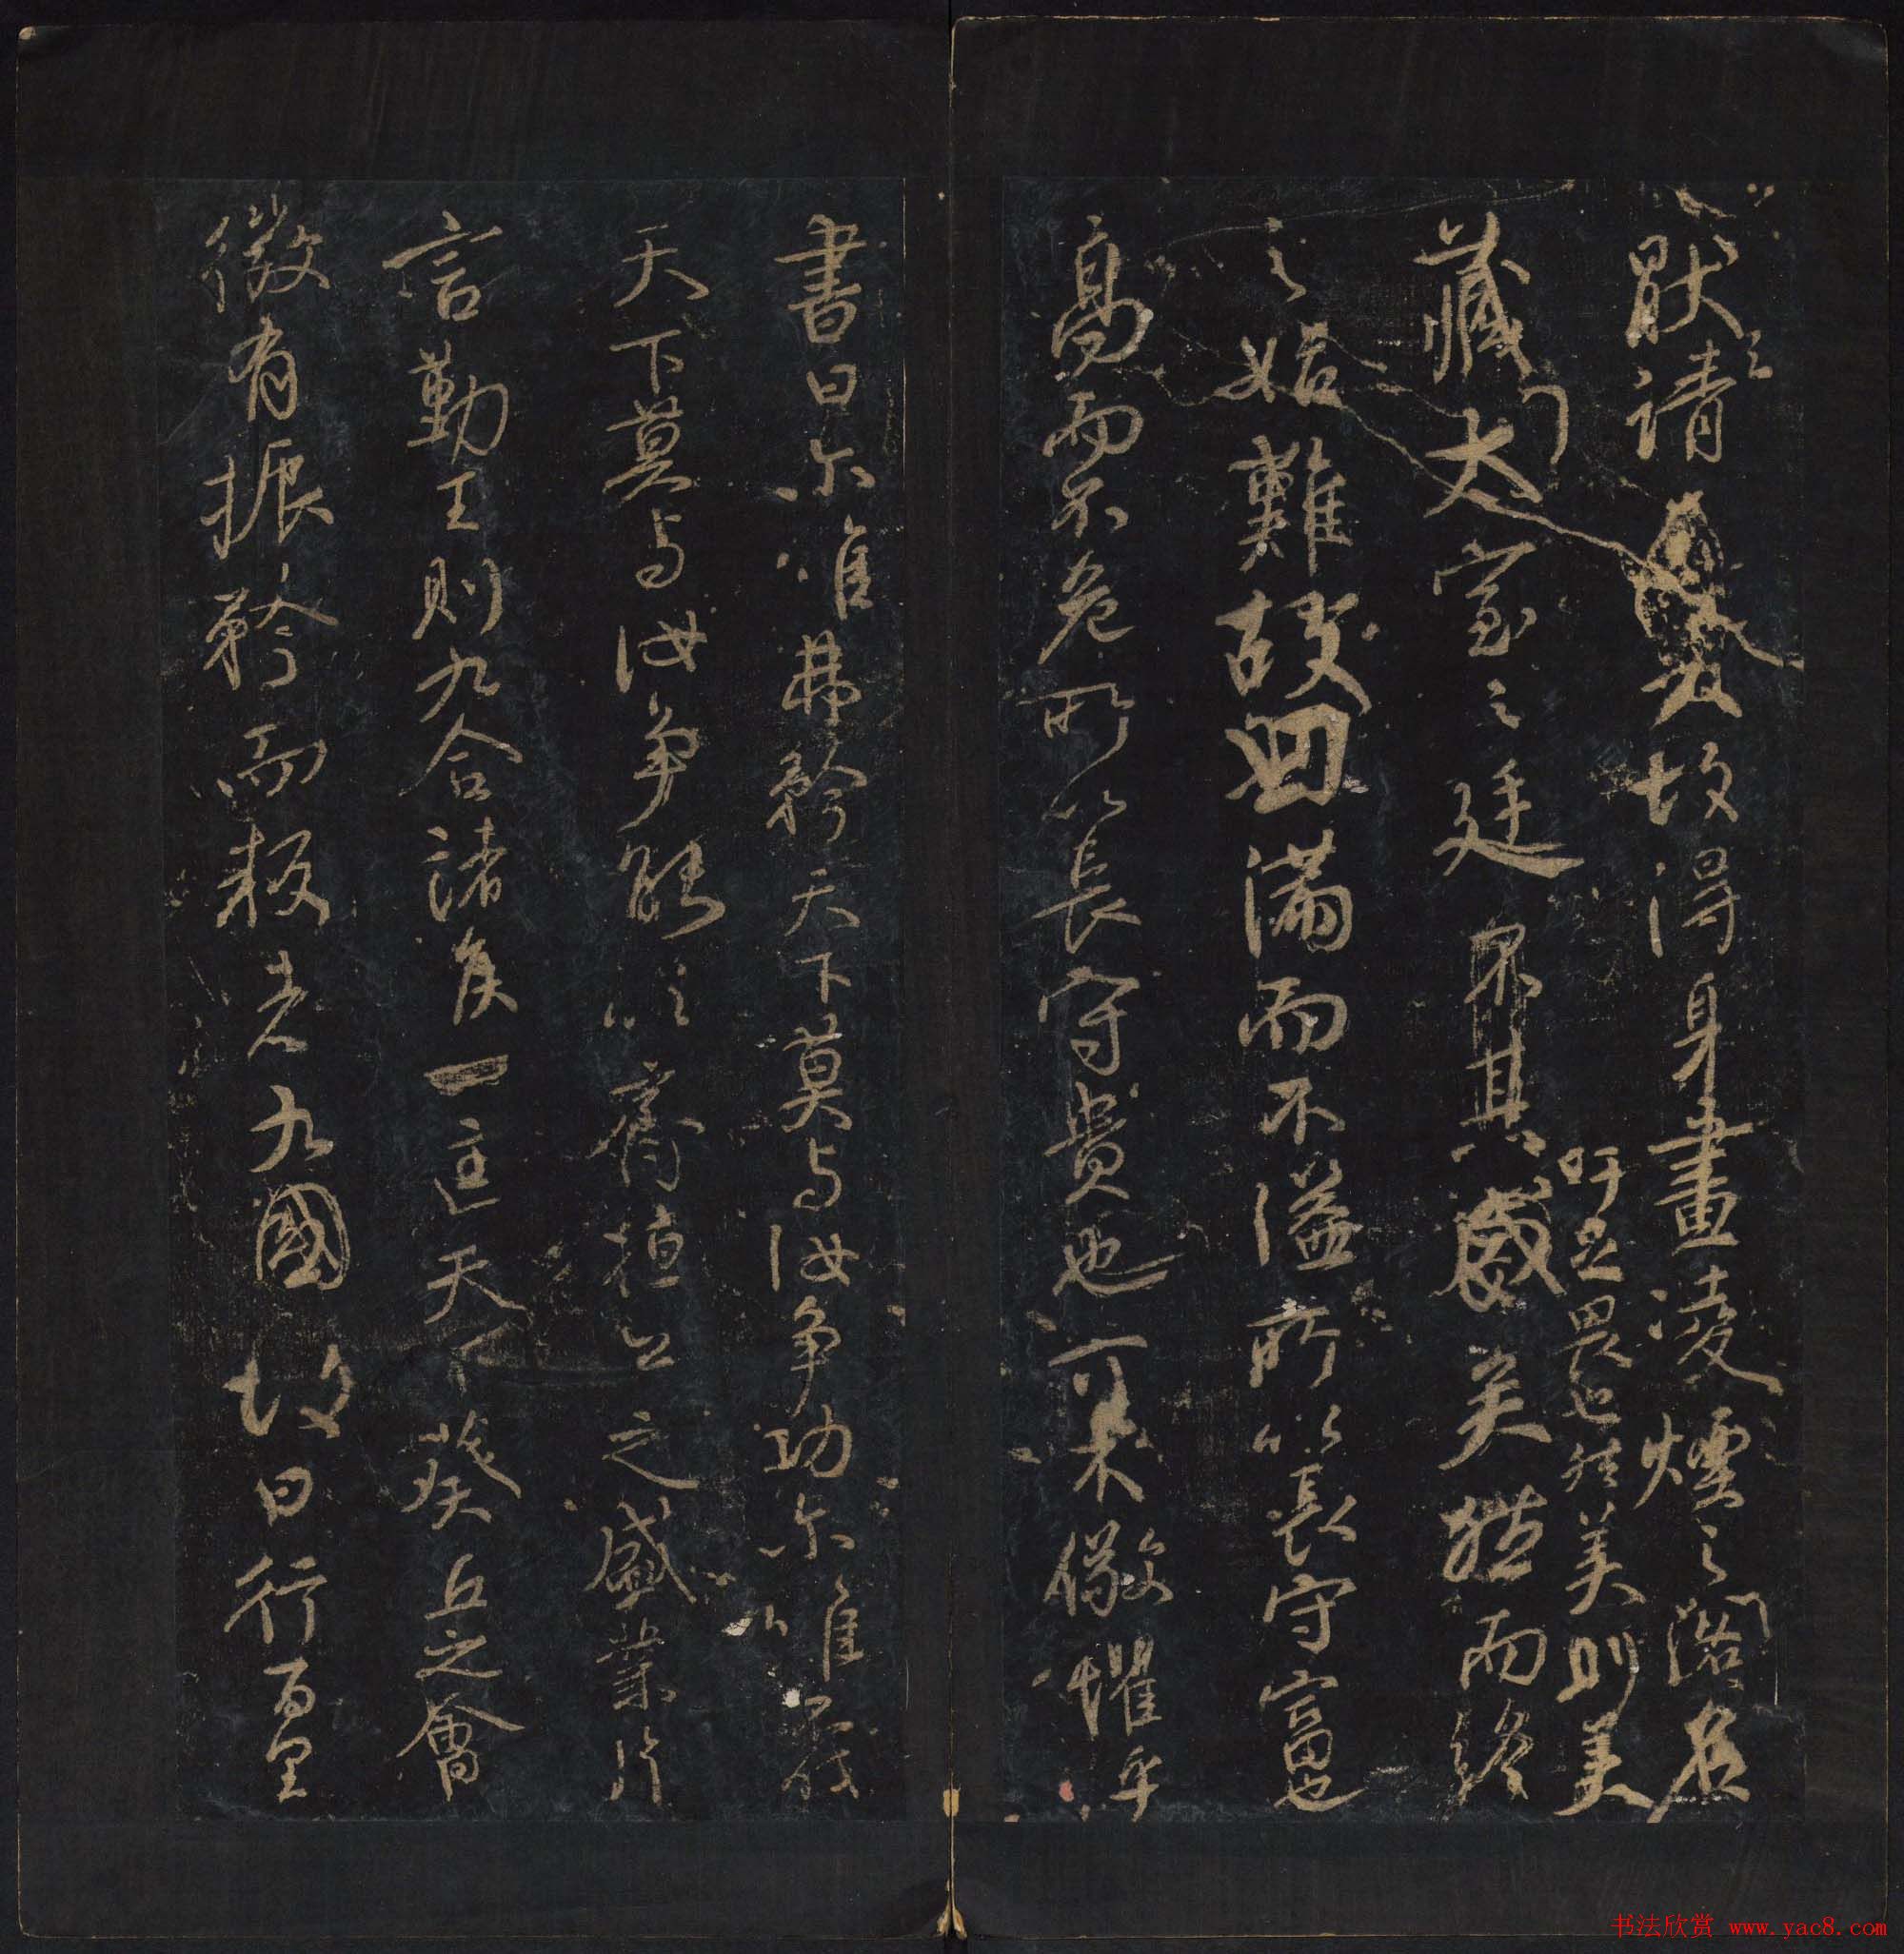 猒之請故得身畫凌煙之閣名
藏太室之廷吁足畏也然美則美
矣然而終
之始難故曰滿而不溢所以長守富也
高而不危所以長守貴也可不儆懼乎
書曰尒唯弗矜天下莫与汝争功尒唯不伐
天下莫与汝争能以齊桓公之盛業片
言勤王則九合諸侯一匡天下葵丘之會
微有振矜而叛者九國故曰行百里
书法欣赏 www.yac8.com